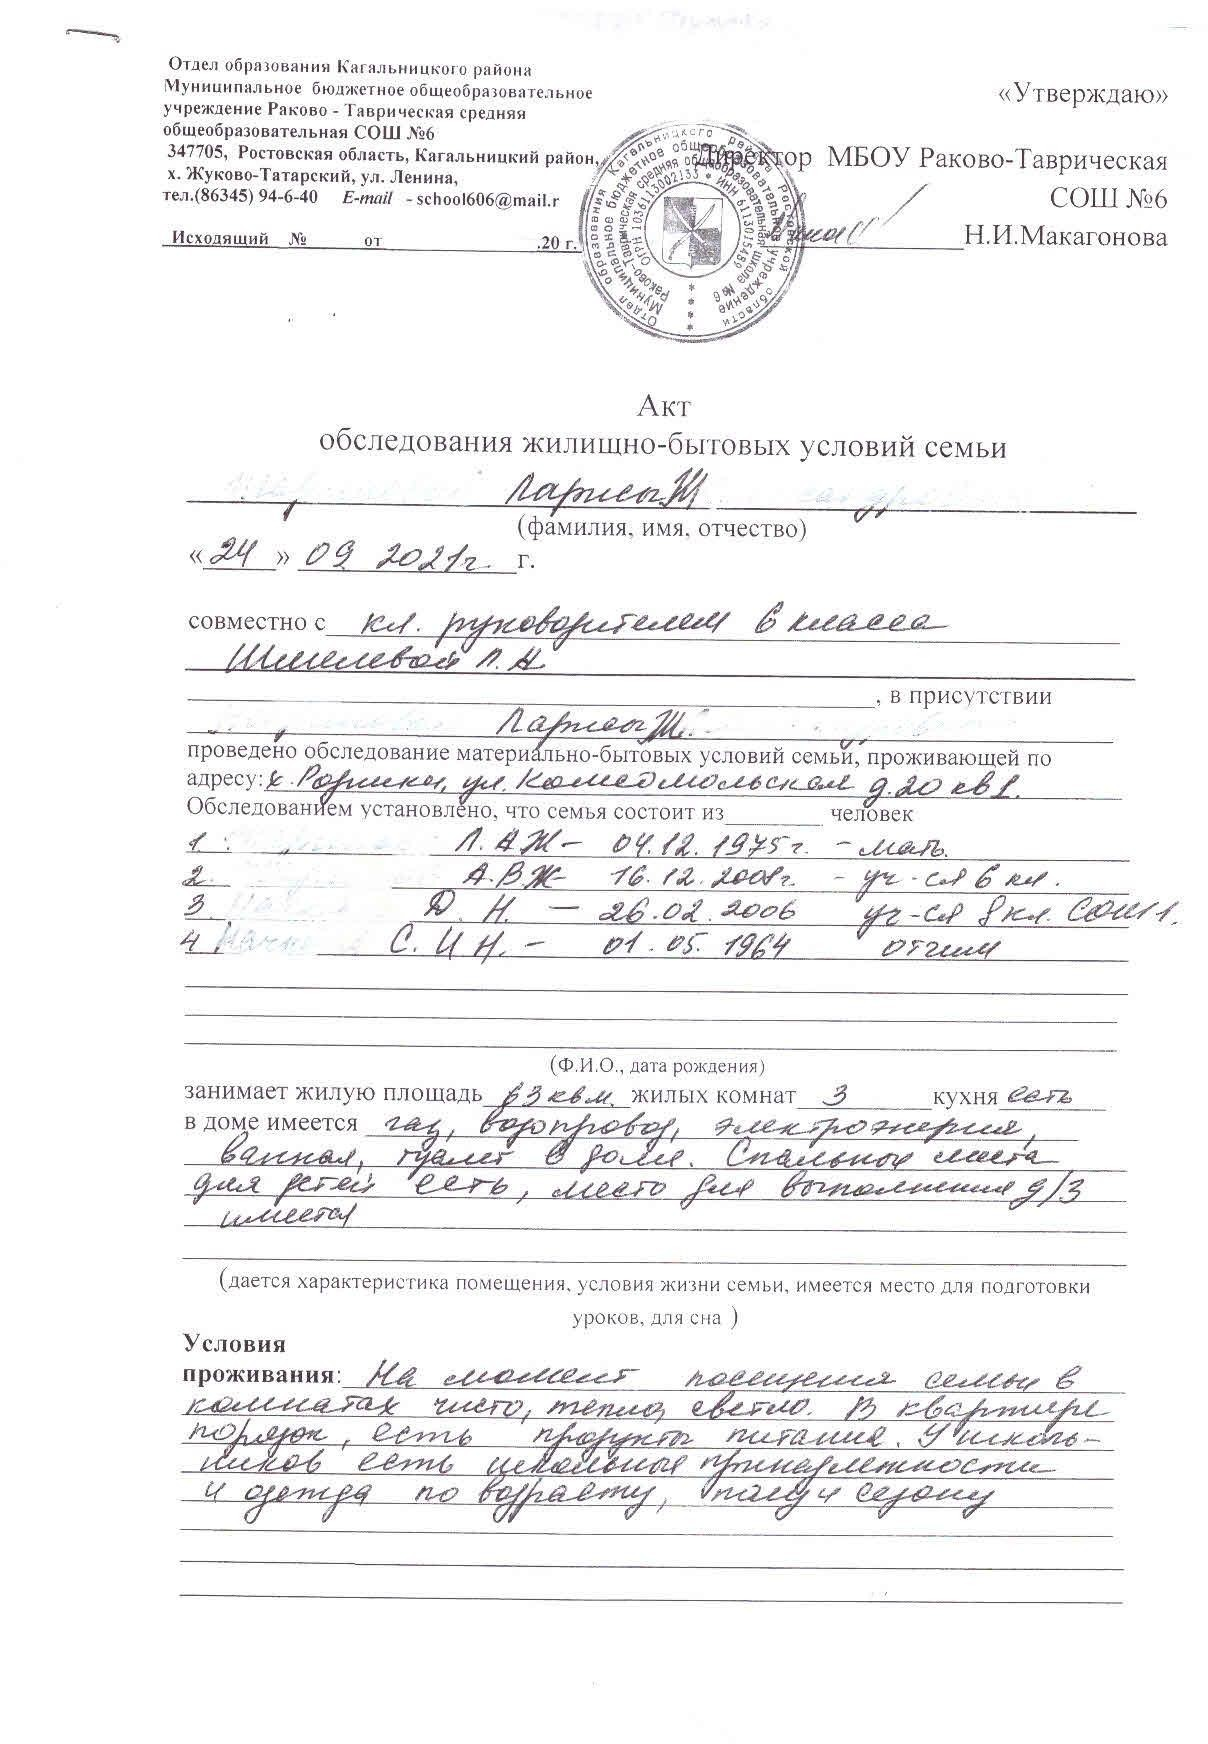 Отдел образования Кагальницкого района
Муниципальное бюджетное общеобразовательное
учреждение Раково - Таврическая средняя
общеобразовательная СОШ №6
347705, Ростовская область, Кагальницкий район,
х. Жуково-Татарский, ул. Ленина,
тел.(86345) 94-6-40 E-mail - school606@mail.r
Исходящий № от .20 г.
«Утверждаю»
Директор МБОУ Раково-Таврическая
СОШ №6
Н.И.Макагонова
Отдел образования Кагальницкого района Ростовской области
Муниципальное бюджетное общеобразовательное учреждение
Раково-Таврическая средняя общеобразовательная школа №6
ОГРН 1036113002133 * ИНН 6113015489
Акт
обследования жилищно-бытовых условий семьи
Ларисы Ж
(фамилия, имя, отчество)
«24» 09 2021г. г.
совместно с кл. руководителем 6 класса
Шмелевой Л.А.
, в присутствии
Ларисы Ж.
проведено обследование материально-бытовых условий семьи, проживающей по
адресу: х. Родники, ул. Комсомольская д.20 кв1.
Обследованием установлено, что семья состоит из человек
1. Л. А Ж - 04.12.1975г. - мать.
2. А.В Ж 16.12.2008г. - уч-ся 6 кл.
3 Д. Н. — 26.02.2006 уч-ся 8 кл. СОШ 1.
4. С. И Н. - 01.05.1964 отчим
(Ф.И.О., дата рождения)
занимает жилую площадь 63 кв м. жилых комнат 3 кухня есть
в доме имеется газ, водопровод, электроэнергия,
ванная, туалет в доме. Спальные места
для детей есть, место для выполнения д/з
имеется
(дается характеристика помещения, условия жизни семьи, имеется место для подготовки
уроков, для сна )
Условия
проживания: На момент посещения семьи в
комнатах чисто, тепло, светло. В квартире
порядок, есть продукты питания. У школь-
ников есть школьные принадлежности
и одежда по возрасту, полу и сезону